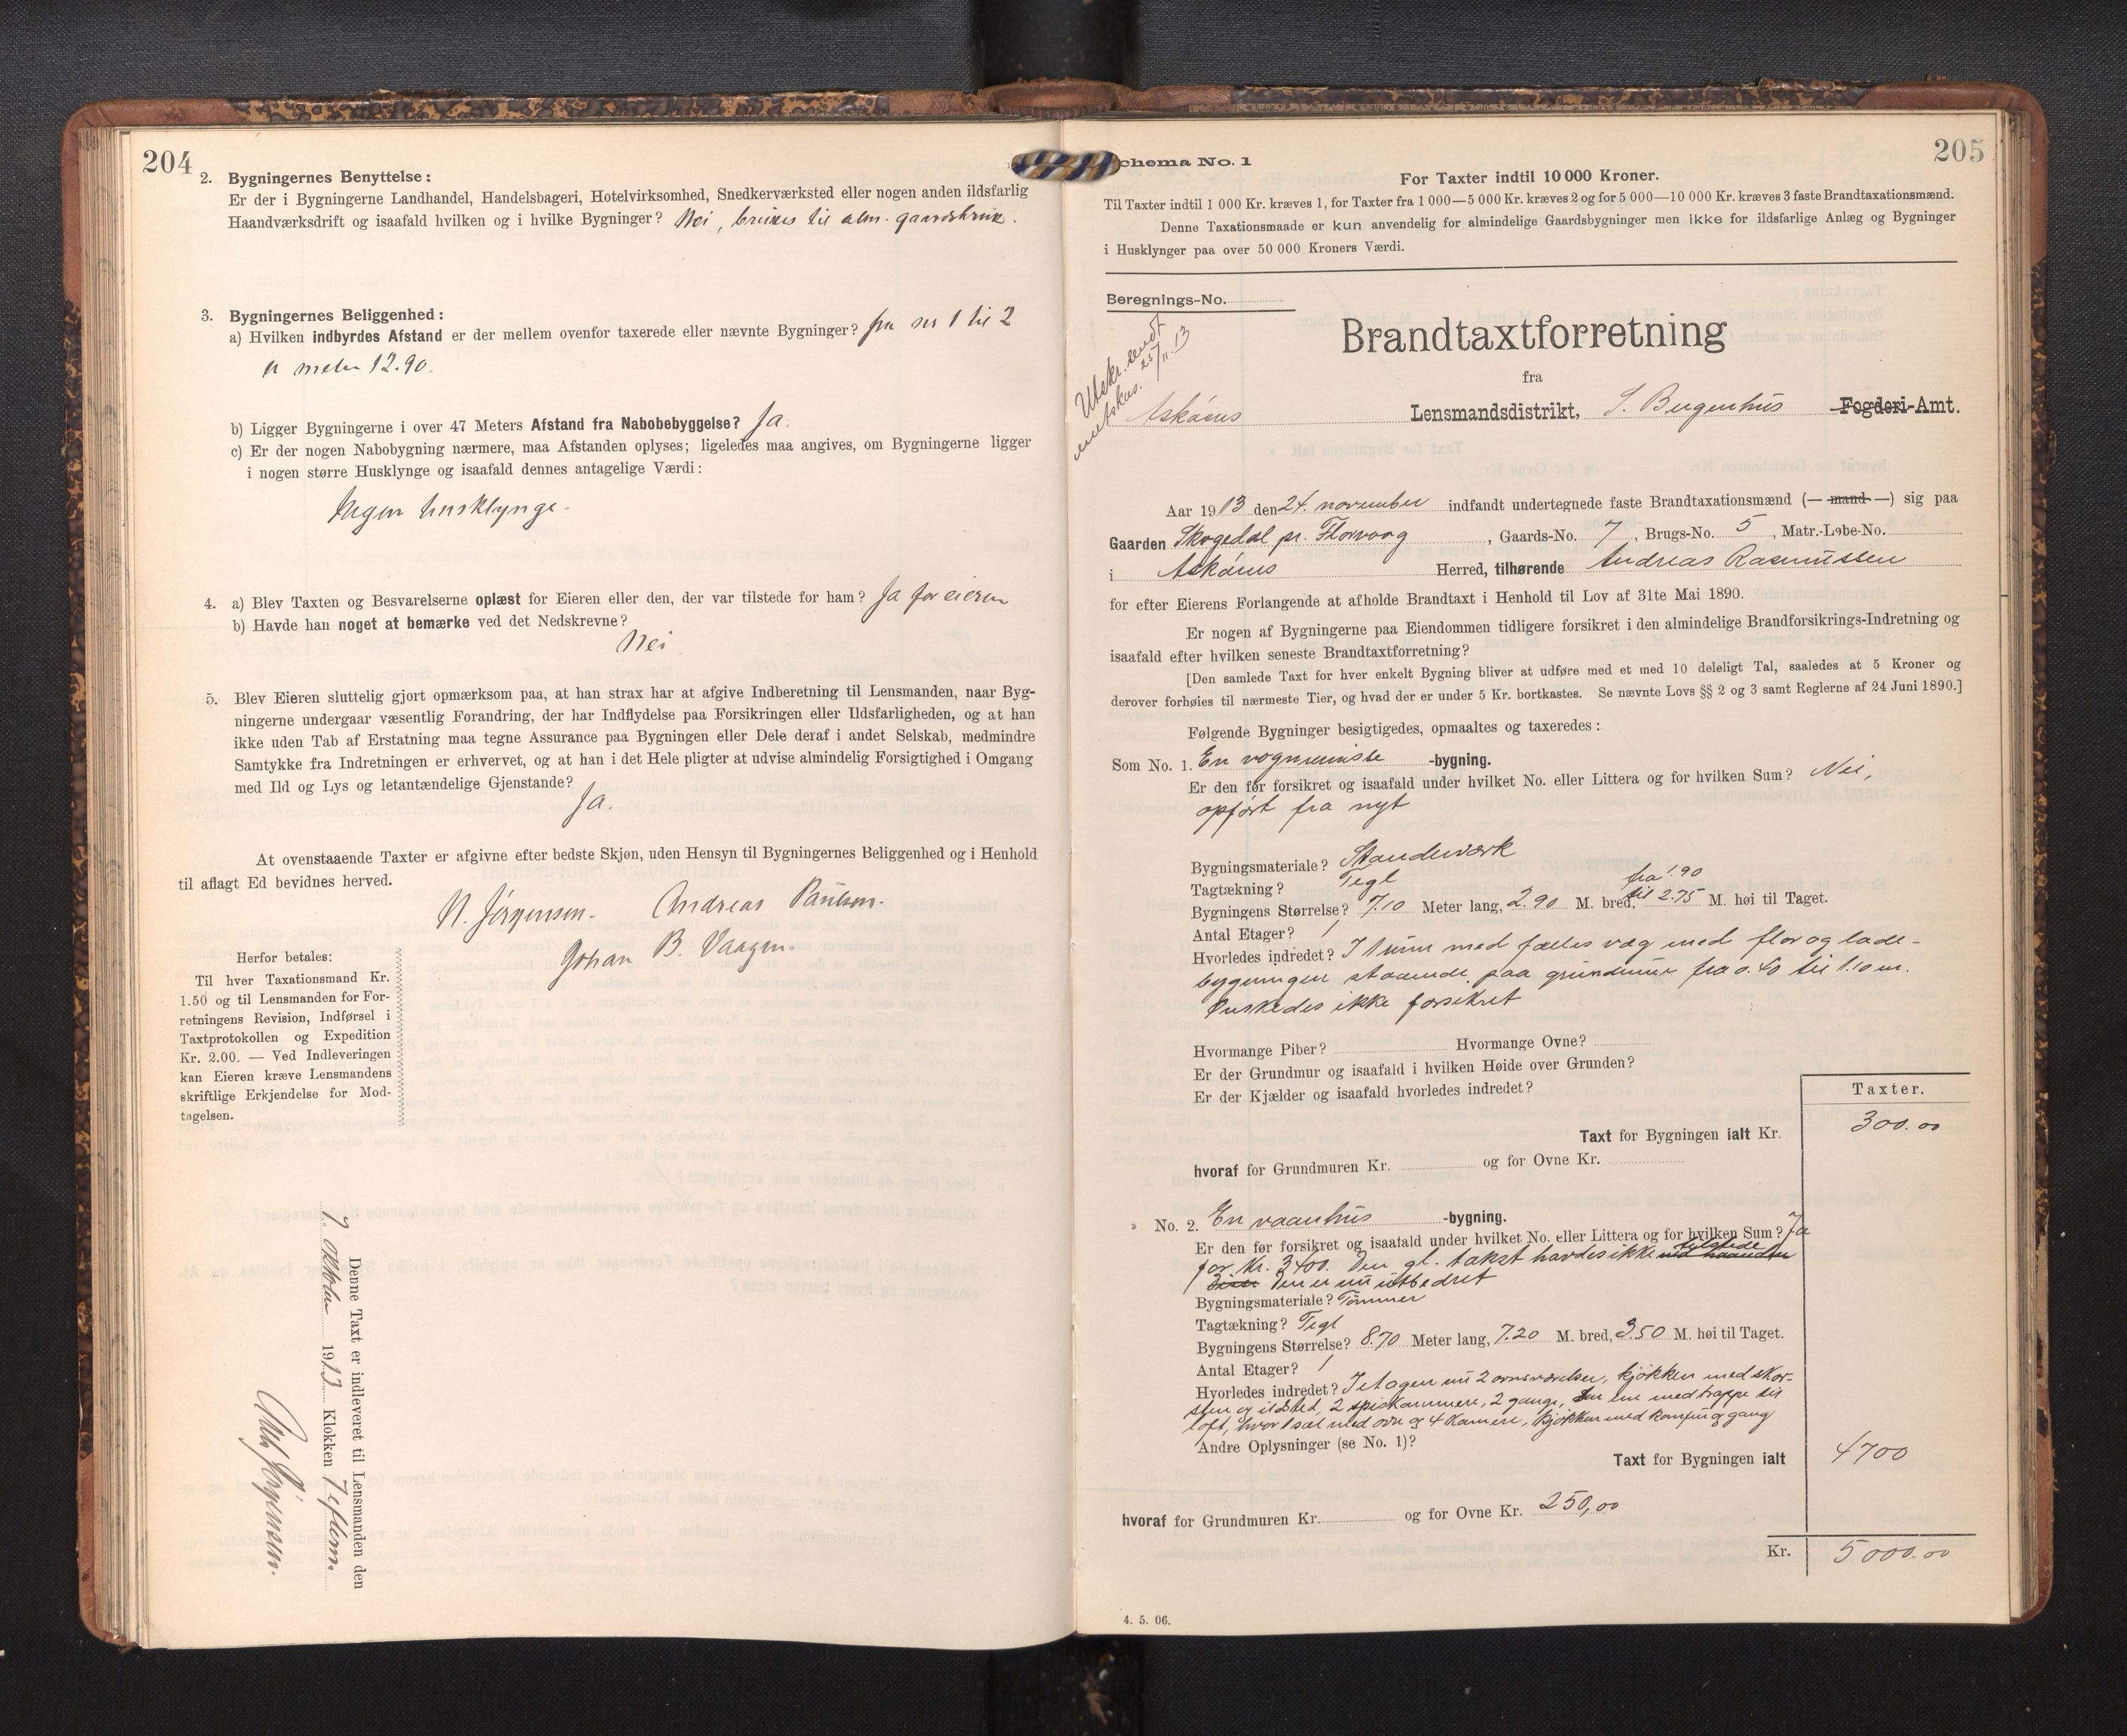 204
2. Bygningernes Benyttelse:
Er der i Bygningerne Landhandel, Handelsbageri, Hotelvirksomhed, Snedkerværksted eller nogen anden ildsfarlig
Haandværksdrift og isaafald hvilken og i hvilke Bygninger? Nei, bruges til alm. gaardsbruk.
3. Bygningernes Beliggenhed:
a) Hvilken indbyrdes Afstand er der mellem ovenfor taxerede eller nævnte Bygninger? fra no 1 til 2
er meter 12.90.
b) Ligger Bygningerne i over 47 Meters Afstand fra Nabobebyggelse? Ja.
c) Er der nogen Nabobygning nærmere, maa Afstanden oplyses; ligeledes maa angives, om Bygningerne ligger
i nogen større Husklynge og isaafald dennes antagelige Værdi:
Ingen husklynge.
4. a) Blev Taxten og Besvarelserne oplæst for Eieren eller den, der var tilstede for ham? Ja for eieren
b) Havde han noget at bemærke ved det Nedskrevne?
Nei
5. Blev Eieren sluttelig gjort opmærksom paa, at han strax har at afgive Indberetning til Lensmanden, naar Byg-
ningerne undergaar væsentlig Forandring, der har Indflydelse paa Forsikringen eller Ildsfarligheden, og at han
ikke uden Tab af Erstatning maa tegne Assurance paa Bygningen eller Dele deraf i andet Selskab, medmindre
Samtykke fra Indretningen er erhvervet, og at han i det Hele pligter at udvise almindelig Forsigtighed i Omgang
med Ild og Lys og letantændelige Gjenstande?
Ja.
At ovenstaaende Taxter er afgivne efter bedste Skjøn, uden Hensyn til Bygningernes Beliggenhed og i Henhold
til aflagt Ed bevidnes herved.
N. Jørgensen. Andreas Paulsen.
Johan B. Vaagen.
Herfor betales:
Til hver Taxationsmand Kr.
1.50 og til Lensmanden for For-
retningens Revision, Indførsel i
Taxtprotokollen og Expedition
Kr. 2.00. — Ved Indleveringen
kan Eieren kræve Lensmandens
skriftlige Erkjendelse for Mod-
tagelsen.
Denne Taxt er indleveret til Lensmanden den
7 oktober 1913 Klokken 7 efterm.
Jørgensen.
Schema No. 1
205
For Taxter indtil 10 000 Kroner.
Til Taxter indtil 1 000 Kr. kræves 1, for Taxter fra 1 000—5 000 Kr. kræves 2 og for 5 000—10 000 Kr. kræves 3 faste Brandtaxationsmænd.
Denne Taxationsmaade er kun anvendelig for almindelige Gaardsbygninger men ikke for ildsfarlige Anlæg og Bygninger
i Husklynger paa over 50 000 Kroners Værdi.
Beregnings-No.
Utskr. sendt
25/11.13
Brandtaxtforretning
fra
Askøens Lensmandsdistrikt, S. Bergenhus Fogderi-Amt.
Aar 1913 den 24. november indfandt undertegnede faste Brandtaxationsmænd (— mand —) sig paa
Gaarden Skogedal pr. Florvaag, Gaards-No. 7, Brugs-No. 5, Matr.-Løbe-No.
i Askøens Herred, tilhørende Andreas Rasmussen
for efter Eierens Forlangende at afholde Brandtaxt i Henhold til Lov af 31te Mai 1890.
Er nogen af Bygningerne paa Eiendommen tidligere forsikret i den almindelige Brandforsikrings-Indretning og
isaafald efter hvilken seneste Brandtaxtforretning?
[Den samlede Taxt for hver enkelt Bygning bliver at udføre med et med 10 deleligt Tal, saaledes at 5 Kroner og
derover forhøies til nærmeste Tier, og hvad der er under 5 Kr. bortkastes. Se nævnte Lovs §§ 2 og 3 samt Reglerne af 24 Juni 1890.]
Følgende Bygninger besigtigedes, opmaaltes og taxeredes:
Som No. 1. En vognremisse -bygning.
Er den før forsikret og isaafald under hvilket No. eller Littera og for hvilken Sum? Nei,
opført fra nyt
Bygningsmateriale? Standeværk
Tagtækning? Tegl
Bygningens Størrelse? 7.10 Meter lang, 2.90 M. bred, fra 1.90 til 2.75 M. høi til Taget.
Antal Etager? 1
Hvorledes indredet? I 1 rum med fælles væg med flor og lade-
bygningen staaende paa grundmur fra 0.40 til 1.10 m.
Ønskedes ikke forsikret
Hvormange Piber? Hvormange Ovne?
Er der Grundmur og isaafald i hvilken Høide over Grunden?
Er der Kjælder og isaafald hvorledes indredet?
Taxter.
Taxt for Bygningen ialt Kr. 300.00
hvoraf for Grundmuren Kr. og for Ovne Kr.
» No. 2. En vaanhus -bygning.
Er den før forsikret og isaafald under hvilket No. eller Littera og for hvilken Sum? Ja
for Kr. 3400. Den gl. takst havdes ikke tilstede
Den er nu utbedret
Bygningsmateriale? Tømmer
Tagtækning? Tegl
Bygningens Størrelse? 8.70 Meter lang, 7.20 M. bred, 3.50 M. høi til Taget.
Antal Etager? 1
Hvorledes indredet? I etagen nu 2 ovnsværelser, kjøkken med skor-
sten og ildsted, 2 spiskammere, 2 gange, den ene med trappe til
loft, hvor 1 sal med ovn og 4 kamere, kjøkken med komfur og gang
Andre Oplysninger (se No. 1)?
Taxt for Bygningen ialt 4700
hvoraf for Grundmuren Kr. og for Ovne Kr. 250,00
Kr. 5000.00
4. 5. 06.